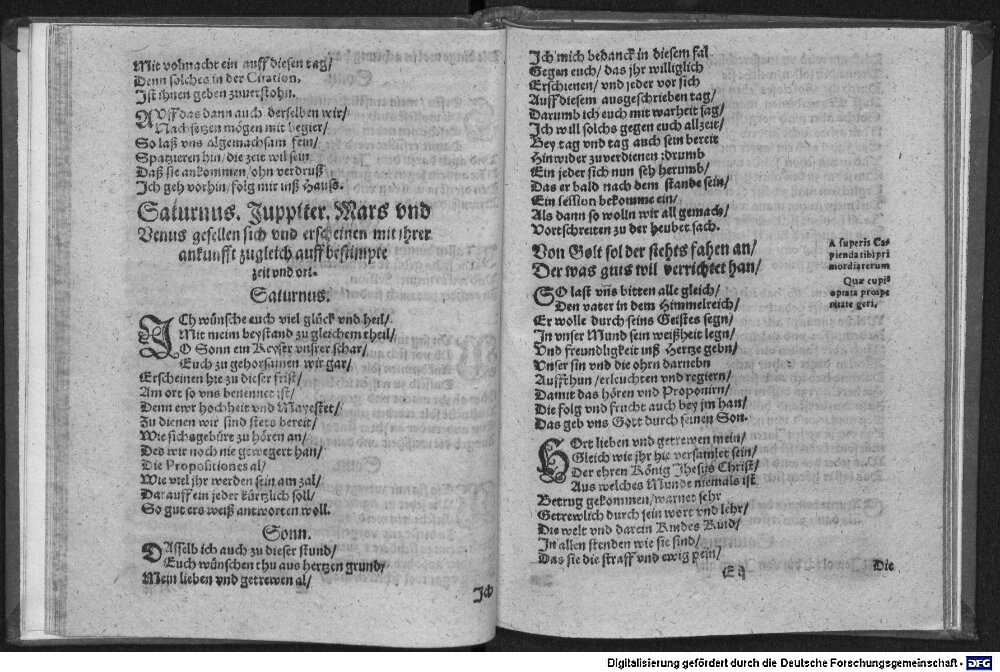 Mit volmacht ein auff diesen tag/
Denn solches in der Citation,
Ist ihnen geben zuuerstohn.
AUff das dann auch derselben wir/
Nachsetzen mögen mit begier/
So laß vns algemachsam fein/
Spazieren hin/ die zeit wil sein
Daß sie ankommen/ ohn verdruß
Ich geh vorhin/ folg mir inß Hauß.
Saturnus. Juppiter. Mars vnd
Venus gesellen sich vnd erscheinen mit jhrer
ankunfft zugleich auff bestimpte
zeit vnd ort.
Saturnus.
ICh wünsche euch viel glück vnd heil/
Mit meim beystand zu gleichem theil/
O Sonn ein Keyser vnsrer schar/
Euch zu gehorsamen wir gar/
Erscheinen hie zu dieser frist/
Am ort so vns benennet ist/
Denn ewr hochheit vnd Mayestet/
Zu dienen wir sind stets bereit/
Wie sichs gebürt zu hören an/
Des wir noch nie gewegert han/
Die Propositiones al/
Wie viel jhr werden sein am zal/
Darauff ein jeder kürtzlich soll/
So gut ers weiß antworten woll.
Sonn.
DAsselb ich auch zu dieser stund/
Euch wünschen thu aus hertzen grund/
Mein lieben vnd getrewen al/
Ich
Ich mich bedanck in diesem fal
Gegen euch/ das jhr williglich
Erschienen/ vnd jeder vor sich
Auff diesem ausgeschrieben tag/
Darumb ich euch mit warheit sag/
Ich will solchs gegen euch allzeit/
Bey tag vnd tag auch sein bereit
Hinwider zuverdienen: drumb
Ein jeder sich nun seh herumb/
Das er bald nach dem stande sein/
Ein session bekomme ein/
Als dann so wolln wir all gemach/
Vortschreiten zu der heubet sach.
Von Gott sol der siehts fahen an/
Der was guts wil verrichtet han/
A superis Ca-
pienda tibi pri
mordia rerum
Quæ cupis
optata prospe
ritate geri.
SO last vns bitten alle gleich/
Den vater in dem Himmelreich/
Er wolle durch seins Geistes segn/
In vnser Mund sein weißheit legn/
Vnd freundligkeit inß Hertze gebn/
Vnser sin vnd die ohrn darnebn
Auffthun/ erleuchten vnd regiern/
Damit das hören vnd Proponirn/
Die folg vnd frucht auch bey jm han/
Das geb vns Gott durch seinen Son.
HOrt lieben vnd getrewen mein/
Gleich wie jhr hie versamlet sein/
Der ehren König Jhesus Christ/
Aus welches Munde niemals ist
Betrug gekommen/ warnet sehr
Getrewlich durch sein wort vnd lehr/
Die welt vnd darein Kindes Kind/
In allen stenden wie sie sind/
Das sie die straff vnd ewig pein/
E ij
Die
Digitalisierung gefördert durch die Deutsche Forschungsgemeinschaft - DFG